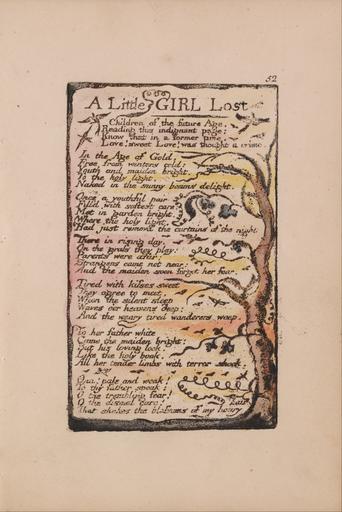 52
A Little GIRL Lost
Children of the future Age,
Reading this indignant page;
Know that in a former time,
Love! sweet Love! was thought a crime.
In the Age of Gold,
Free from winters cold;
Youth and maiden bright,
To the holy light,
Naked in the sunny beams delight.
Once a youthful pair
Fill'd with softest care;
Met in garden bright,
Where the holy light,
Had just removd the curtains of the night.
There in rising day,
On the grass they play:
Parents were afar:
Strangers came not near:
And the maiden soon forgot her fear.
Tired with kisses sweet
They agree to meet,
When the silent sleep
Waves o'er heavens deep:
And the weary tired wanderers weep.
To her father white
Came the maiden bright:
But his loving look,
Like the holy book,
All her tender limbs with terror shook.
Ona! pale and weak!
To thy father speak:
O the trembling fear!
O the dismal care!
That shakes the blossoms of my hoary
hair